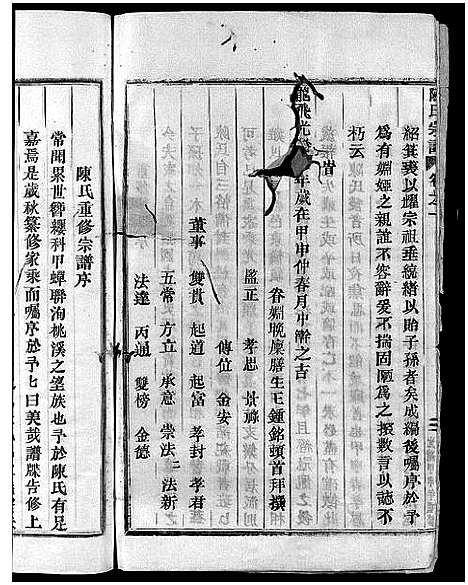 陳氏宗譜 卷之一
紹箕裘以耀宗祖垂統緒以貽子孫者矣成編後囑序於予
爲有婣婭之親誼不容辭爰不揣固陋爲之掇數言以誌不
朽云
龍飛光緒 年歲在甲申仲春月中澣之吉
眷婣晚廩膳生王鍾銘頓首拜撰
監正 孝思 景祿
傳位 金安
董事 雙貴 起道 起富 孝封 孝君
五常 方立 承意 崇法 法新
法達 丙通 雙榜 金德
陳氏重修宗譜序
常聞累世簪纓科甲蟬聯洵桃溪之望族也予於陳氏有足
嘉焉是歲秋纂修家乘而囑序於予七曰美哉譜牒告修上